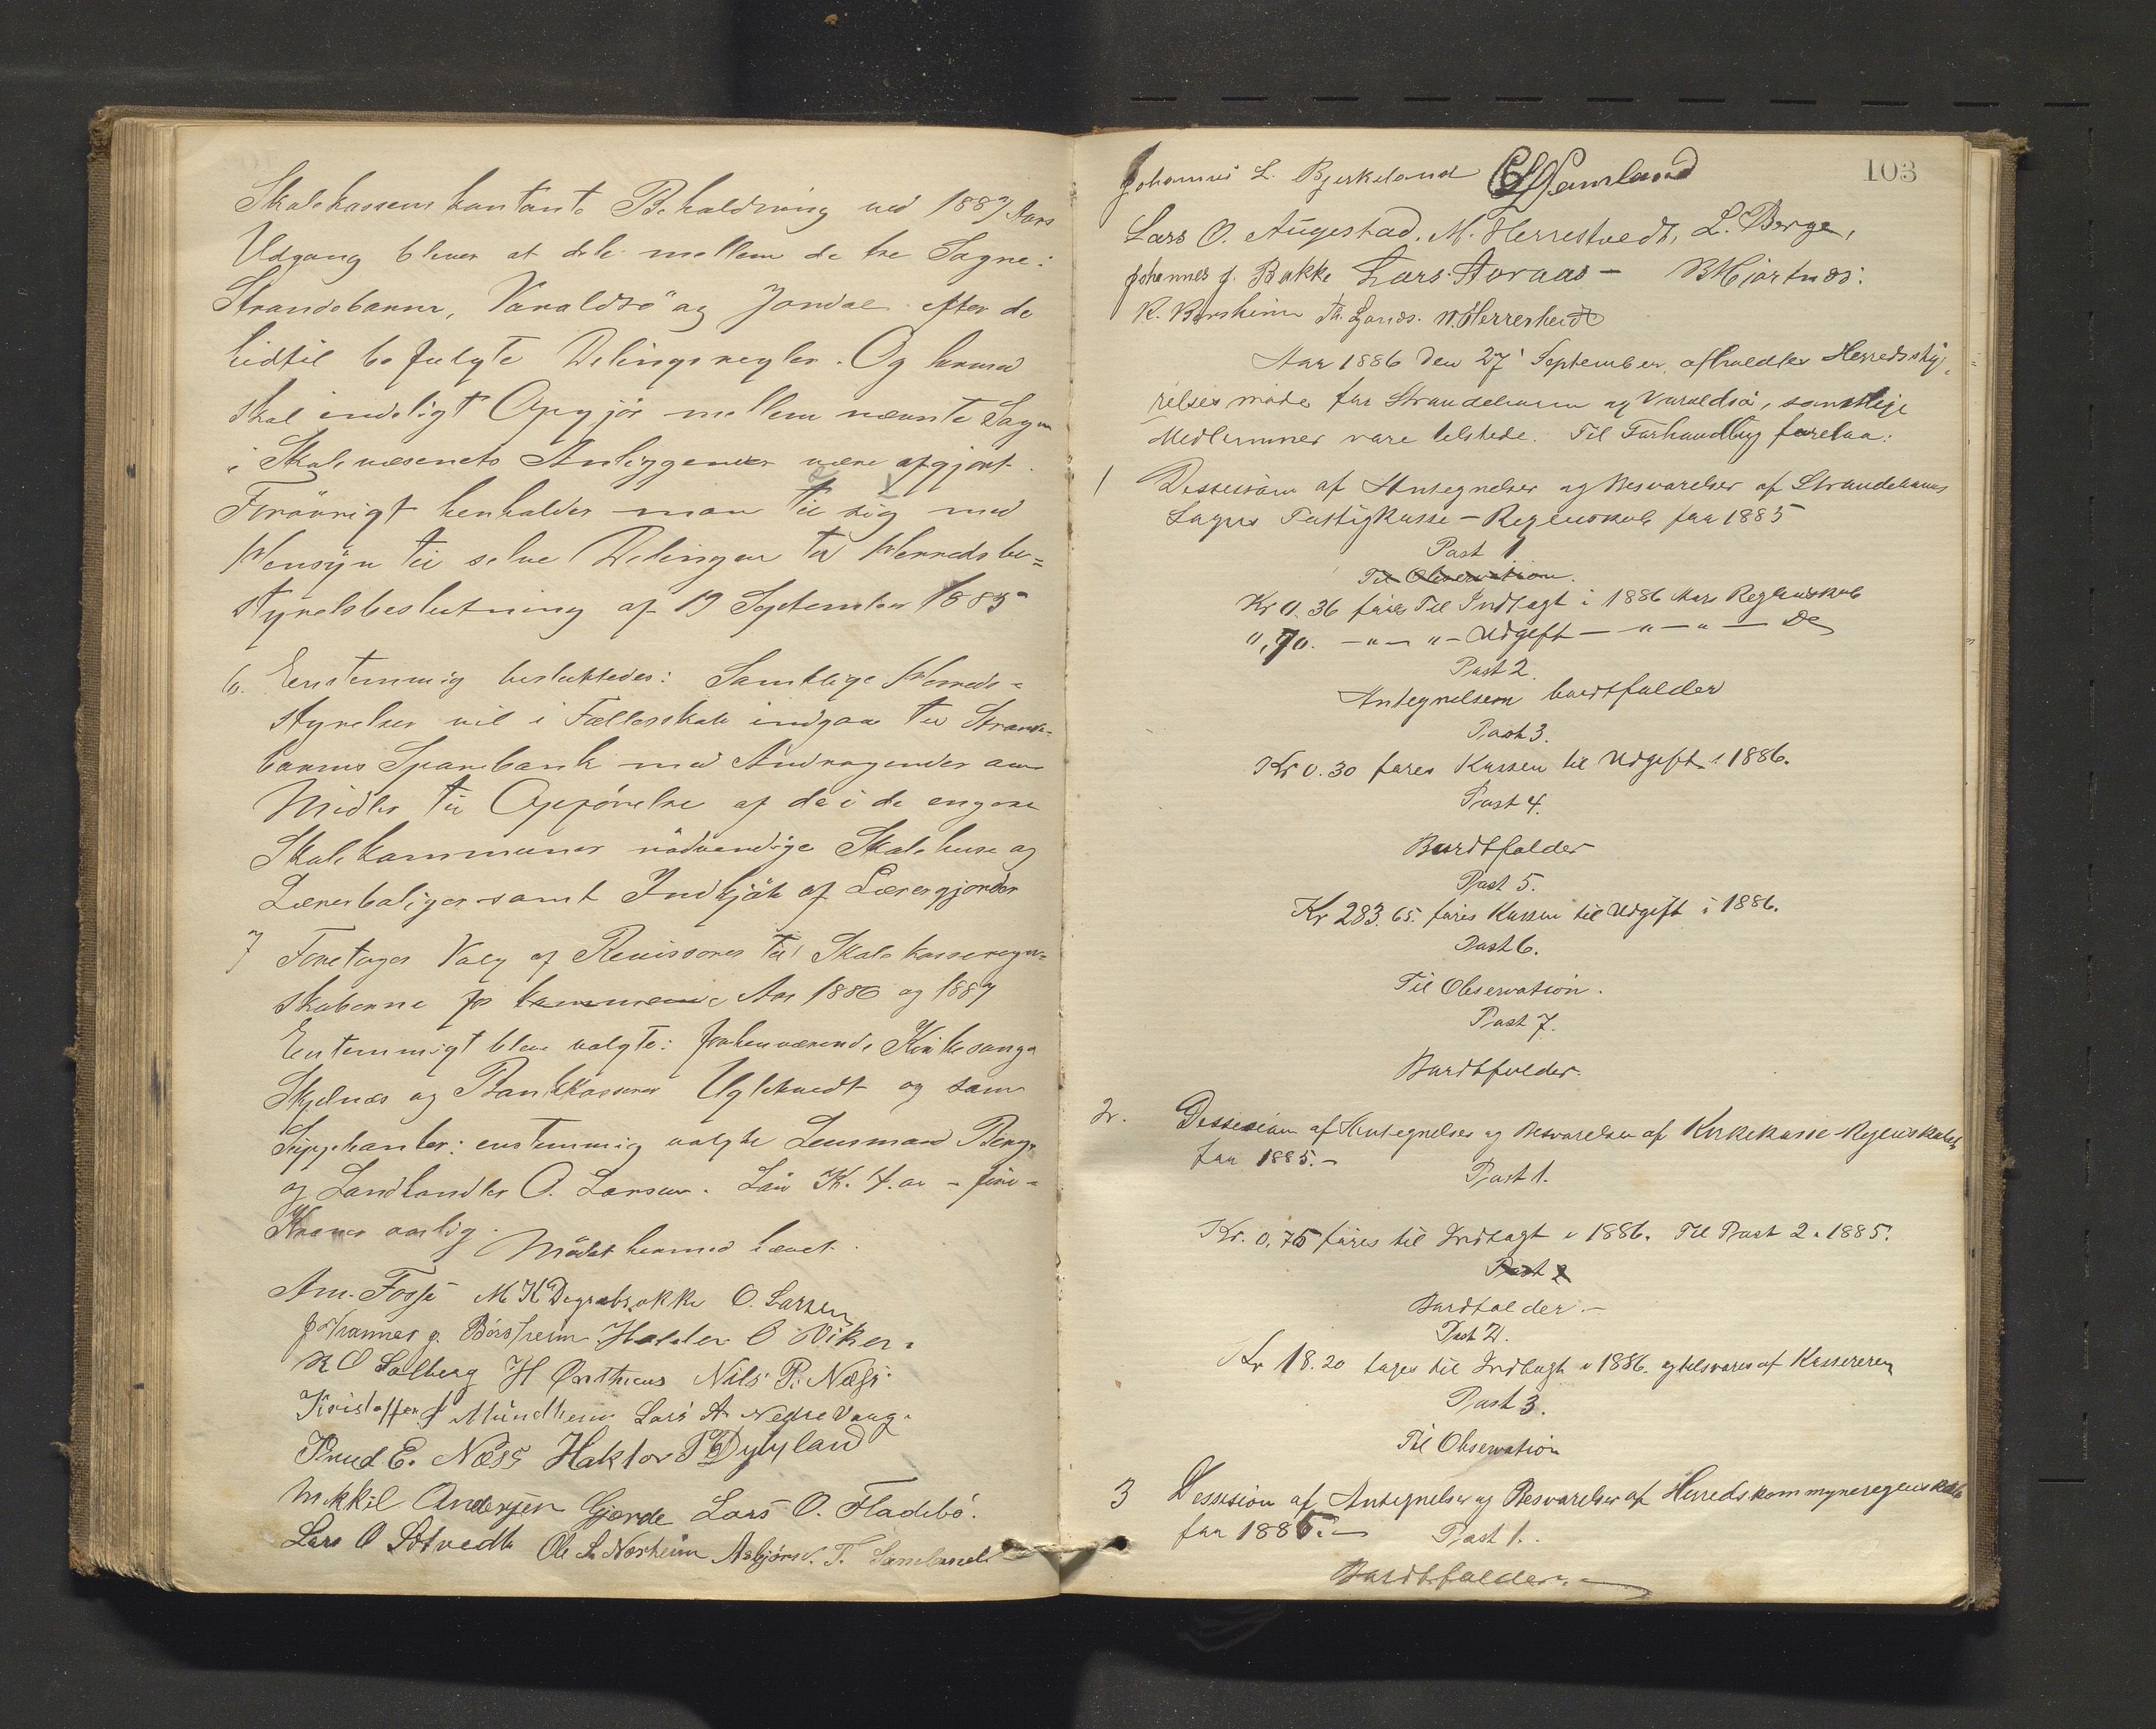 Skolekassens kontante Beholdning ved 1887 Aars
Udgang bliver at dele mellem de tre Sogne:
Strandebarm, Varaldsö og Jondal efter de
hidtil befulgte Delingsregler. Og hermed
skal endeligt Opgjör mellem nævnte Sogne
i Skolevæsenets Anliggender være afgjort.
Forövrigt henholder man til sig med
Hensyn til selve Delingen til Herredsbe=
styrelsbeslutning af 19 September 1885
6. Enstemmig besluttedes: Samtlige Herreds=
styrelser vil i Fællesskab indgaa til Strande-
barms Sparebank med Andragender om
Midler til Opförelse af de i de engere
Skolekommuner nödvendige Skolehuse og
Lærerboliger samt Indkjöb af Lærergjorder
7 Foretoges Valg af Revisorer til Skolekasseregn=
skaberne for kommende Aar 1886 og 1887
Enstemmigt blev valgte: forhenværende Kirkesanger
Skjelnæs og Bankkasserer Uglekvedt og som
Suppleanter: enstemmig valgte Lensmand Berge
og Landhandler O. Larsen. Lön Kr. 4.00 - fire -
Kroner aarlig. Mödet hermed hævet.
Am. Fosse M K Degrabrække O. Larsen
Johannes J. Börsheim Haldor O Viker.
K O Solberg H Nils P. Næss.
Kristoffer J Mundheim Lars A Nedre Vaage
Knud E. Næss Haktor P Dysyland
Mikkil Andersen Gjerde Lars O. Fladebö.
Lars O Sotvedt Ole L Norheim Asbjörn T. Samland
103
Johannes L. Bjerkeland Samland
Lars O. Augestad. M. Herrestvedt, L. Berge,
Johannes J. Bakke Lars Avraas - B Hjortnæs:
K. Börsheim N. Herrestvedt
Aar 1886 den 27 September afholdtes Herredssty,
relsesmöde for Strandebarm og Varaldsö, samtlige
Medlemmer vare tilstede. Til Forhandling forelaa:
1 Dessision af Antegnelser og Besvarelser af Strandebarms
Sogns Fattigkasse - Regnskab for 1885
Post 1
Til Observation.
Kr 0.36 föres Til Indtægt i 1886 Aars Regnskab
0,70. - " - " - Udgift - " - " - Do
Post 2.
Antegnelsen bortfalder
Post 3.
Kr 0.30 föres Kassen til Udgift i 1886.
Post 4.
Bortfalder
Post 5.
Kr 283.65. föres Kassen til Udgift i 1886.
Post 6.
Til Observation.
Post 7.
Bortfalder.
2. Dessision af Antegnelser og Besvarelser af Kirkekasse-Regnskabet
for 1885.-
Post 1.
Kr. 0,75 föres til Indtægt i 1886. Til Post 2. 1885.
Post 2
Bortfalder.-
Post 2.
Kr 18.20 tages til Indtægt i 1886. og tilsvares af Kassereren
Post 3.
Til Observation
3 Dessision af Antegnelser og Besvarelser af Herredskommuneregnskab
for 1885.-
Post 1.
Bortfalder.-